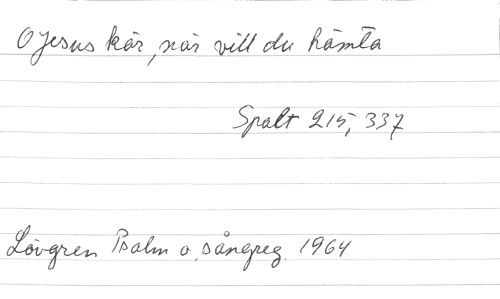 O Jesus kär, när vill du hämta
Spalt 215, 337
Lövgren Psalm o. sångreg. 1964